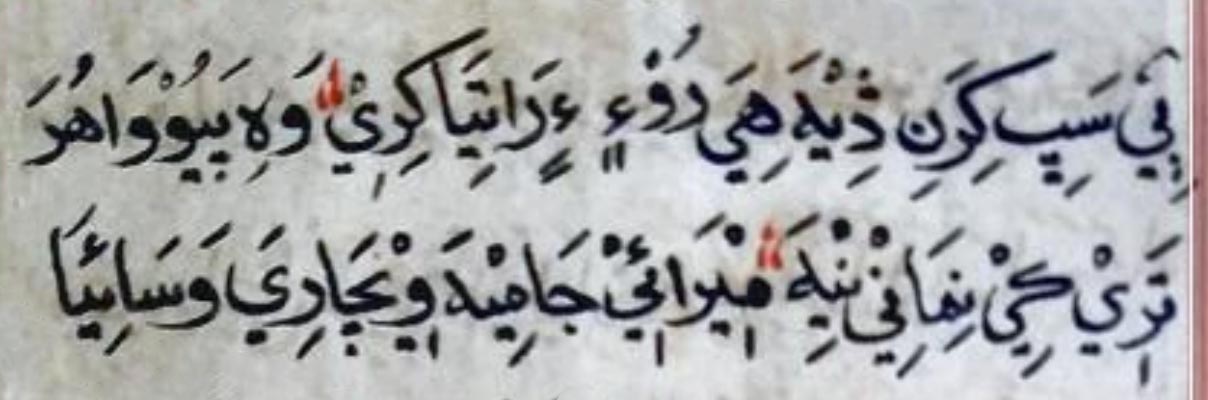 پِي سَپِ كِرَنِ ذِيْهَ هِيَ رُوْءِ ءٍ رَاتِيَا كِرِيْ وَهِ بِيُوْ وَاهُرَ
تَرِيْ كِيْ نِمَانِيْ نِيْهِ مٖيْرَائِيْ جَامِيْهَ وٖيْچَارِيَ وَسَائِيَا